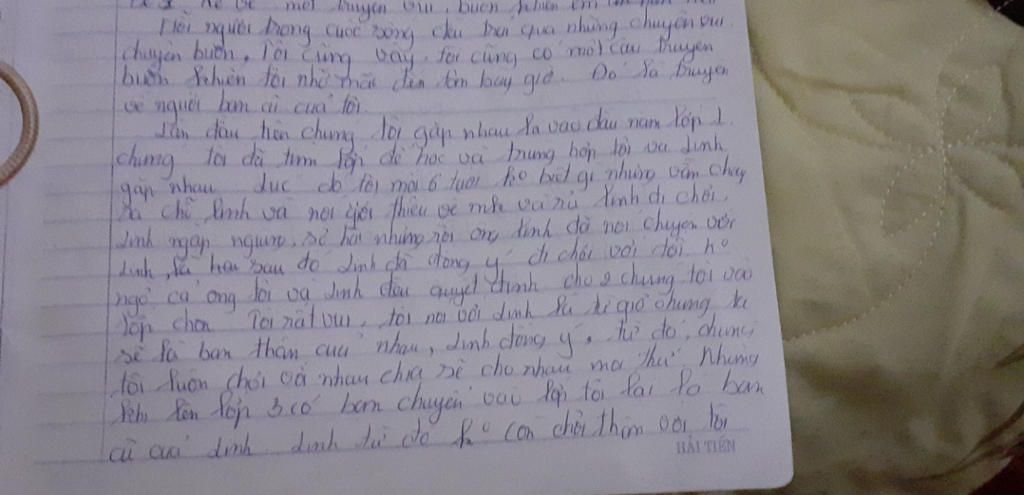 Kể về một truyện vui, buồn khiến em
Mỗi người trong cuộc sống đều trải qua những chuyện vui
chuyện buồn, Tôi cũng vậy, tôi cũng có một câu truyện
buồn khiến tôi nhớ mãi đến tìm bay giờ. Đó là truyện
về người bạn cũ của tôi.
Lần đầu tiên chúng tôi gặp nhau là vào đầu năm lớp 1
chúng tôi đã tìm lớp để học và trùng hợp tôi và Linh
gặp nhau đuc đó tôi mới 6 tuổi ko biết gì nhưng vẫn chạy
ra chỗ Linh và nói giới thiệu về mk và rủ Linh đi chơi,
Linh ngập ngừng, sợ hãi nhưng rồi ông Linh đã nói chuyện với
Linh, là hai sau đó Linh đã đồng ý đi chơi với tôi. ko
ngờ cả ông tôi và Linh đều quyết định cho 2 chúng tôi vào
lớp chọn Tôi rất vui, tôi nói với Linh là từ giờ chúng ta
sẽ là bạn thân của nhau, Linh đồng ý, từ đó, chúng
tôi luôn chơi với nhau chia sẻ cho nhau mọi thứ. Nhưng
khi lên lớp 3 có bạn chuyển vào lớp tôi lại là bạn
cũ của Linh Linh từ đó ko còn chơi thân với tôi
HẢI TIẾN